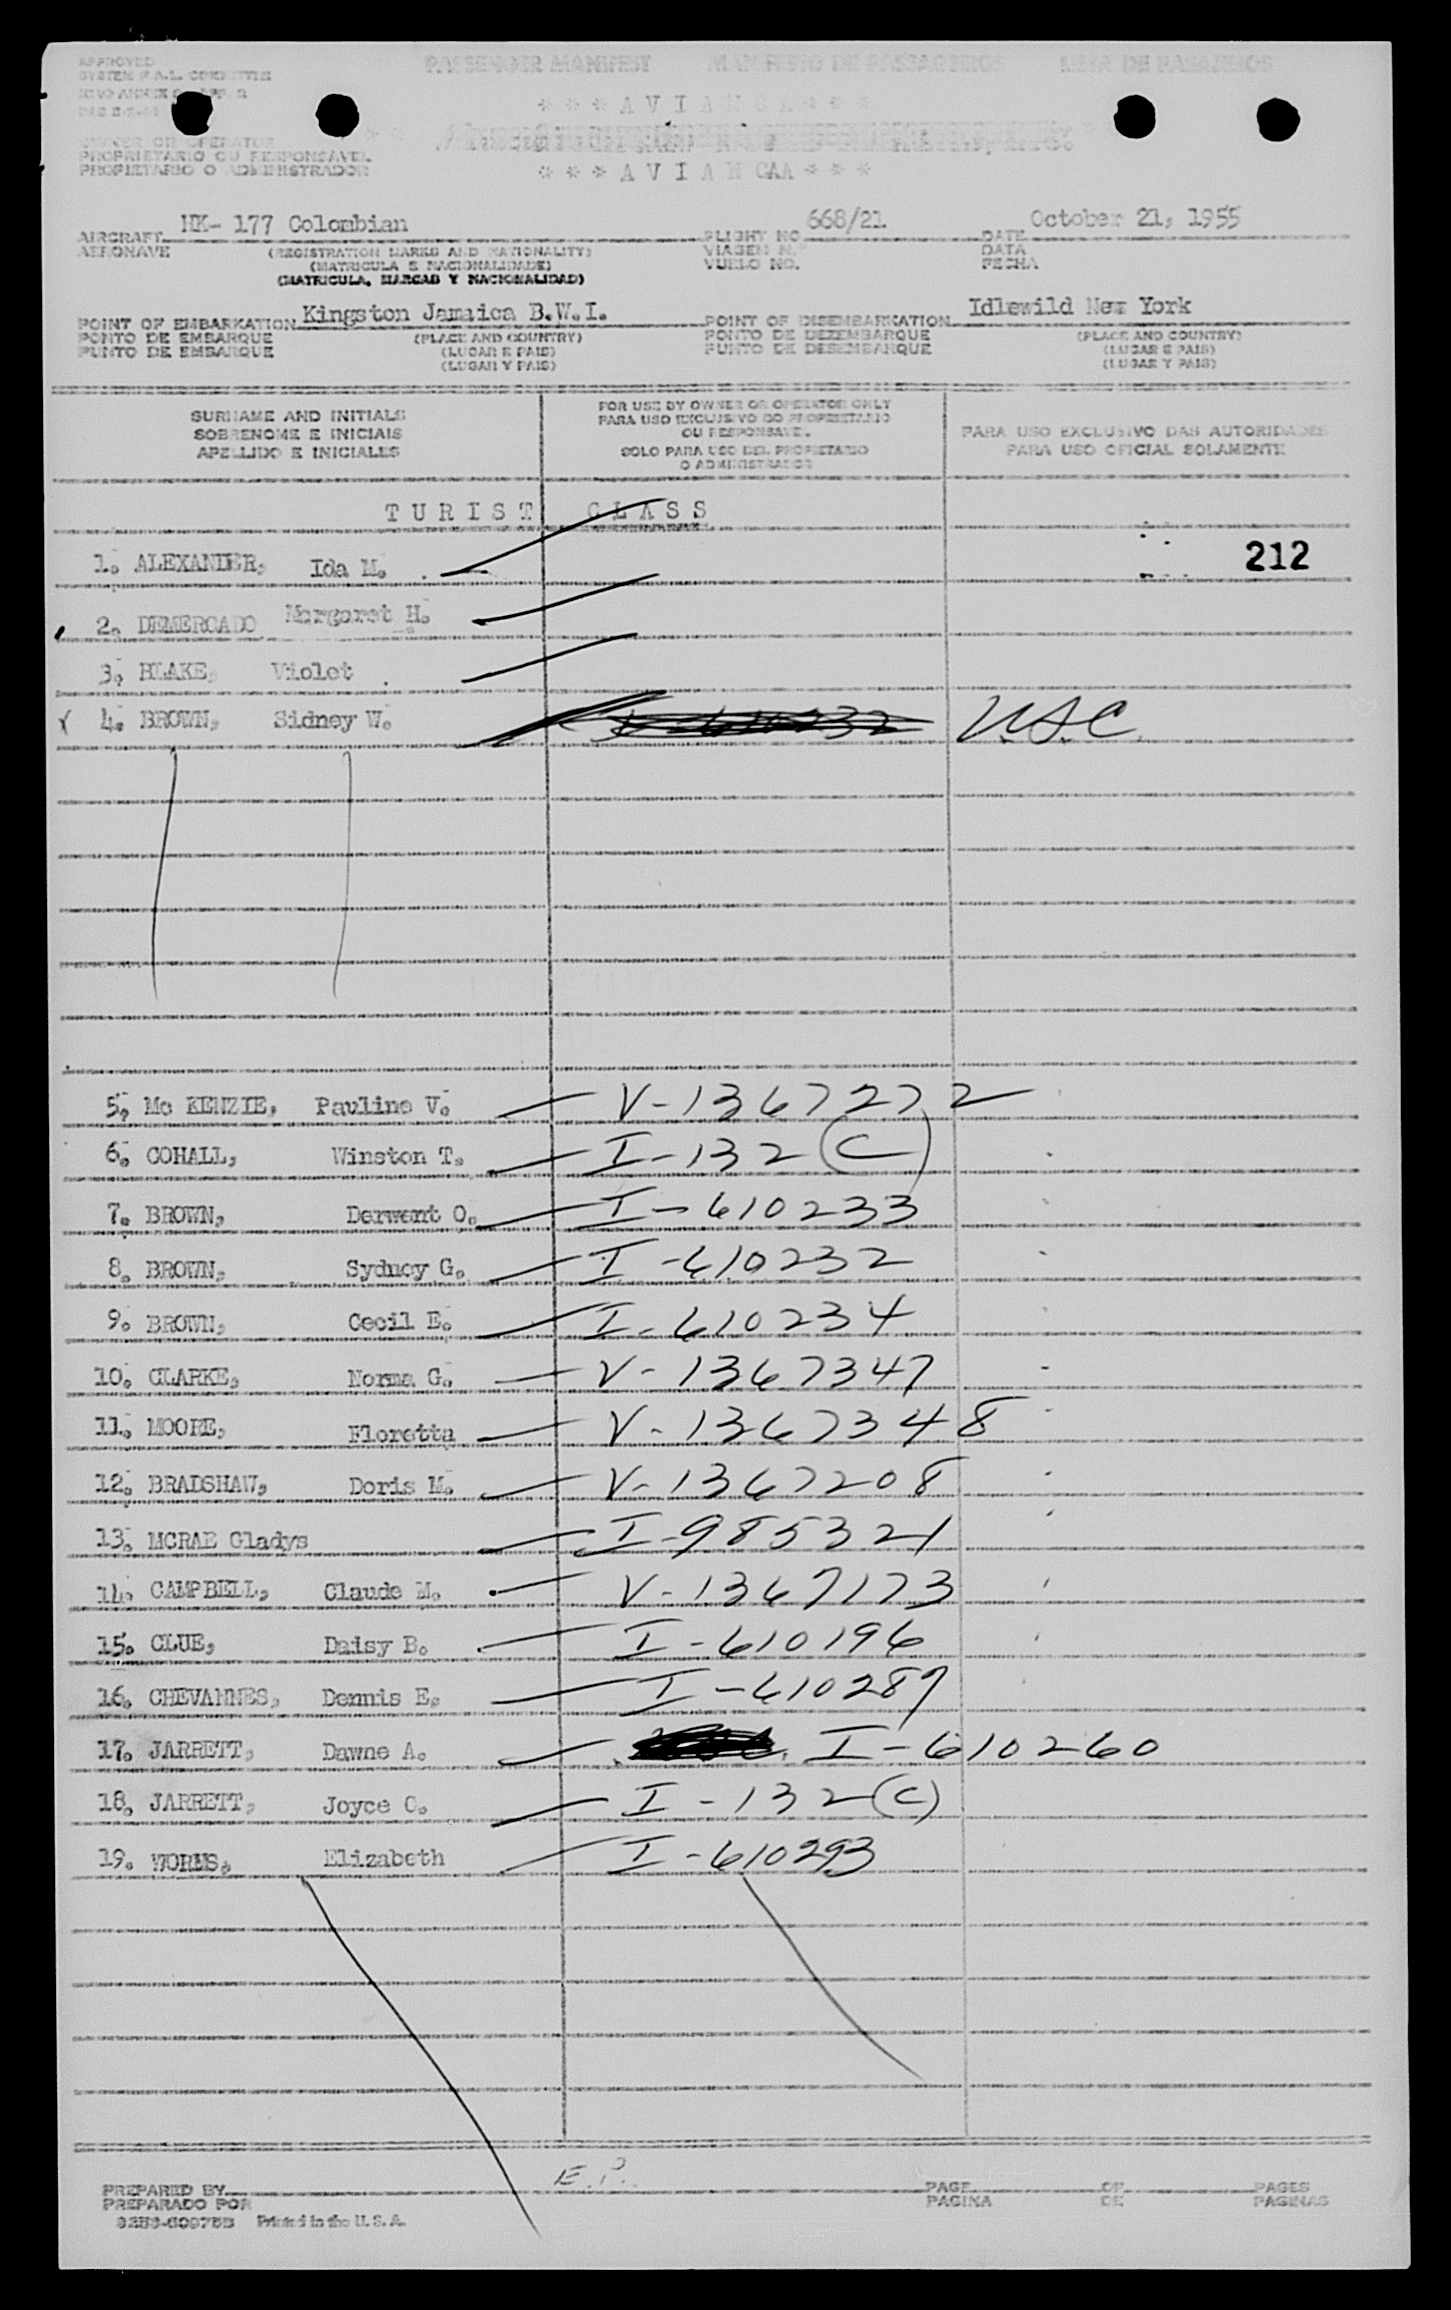 APPROVED
PASSENGER MANIFEST MANIFESTO DE PASSAGEIROS LISTA DE PASAJEROS
* * * A V I A N C A * * *
OWNER OR OPERATOR
PROPRIETARIO OU RESPONSAVEL
PROPIETARIO O ADMINISTRADOR
* * * A V I A N CAA * * *
HK- 177 Colombian 668/21 October 21, 1955
AIRCRAFT FLIGHT NO DATE
AERONAVE (REGISTRATION MARKS AND NATIONALITY) VIAGEM N. DATA
(MATRICULA E NACIONALIDADE) VUELO NO. FECHA
(MATRICULA, MARCAS Y NACIONALIDAD)
Kingston Jamaica B.W.I. Idlewild New York
POINT OF EMBARKATION POINT OF DISEMBARKATION
PONTO DE EMBARQUE (PLACE AND COUNTRY) PONTO DE DEZEMBARQUE (PLACE AND COUNTRY)
PUNTO DE EMBARQUE (LUGAR E PAIS) PUNTO DE DESEMBARQUE (LUGAR E PAIS)
(LUGAR Y PAIS) (LUGAR Y PAIS)
SURNAME AND INITIALS FOR USE BY OWNER OR OPERATOR ONLY
SOBRENOME E INICIAIS PARA USO EXCLUSIVO DO PROPRIETARIO PARA USO EXCLUSIVO DAS AUTORIDADES
APELLIDO E INICIALES OU RESPONSAVEL PARA USO OFICIAL SOLAMENTE
SOLO PARA USO DEL PROPIETARIO
O ADMINISTRADOR
T U R I S T C L A S S
1. ALEXANDER, Ida M. 212
2. DEMERCADO Margaret H.
3. BLAKE, Violet
4. BROWN, Sidney W. V-610232 U.S.C.
5. Mc KENZIE, Pauline V. V-1367272
6. COHALL, Winston T. I-132 (C)
7. BROWN, Derwent O. I-610233
8. BROWN, Sydney G. I-610232
9. BROWN, Cecil E. I-610234
10. CLARKE, Norma G. V-1367347
11. MOORE, Floretta V-1367348
12. BRADSHAW, Doris M. V-1367208
13. MCRAE Gladys I-985321
14. CAMPBELL, Claude M. V-1367173
15. CLUE, Daisy B. I-610196
16. CHEVANNES, Dennis E. I-610289
17. JARRETT, Dawne A. I-610260
18. JARRETT, Joyce C. I-132(C)
19. WORMS, Elizabeth I-610293
E.P.
PREPARED BY PAGE OF PAGES
PREPARADO POR PAGINA DE PAGINAS
Printed in the U.S.A.